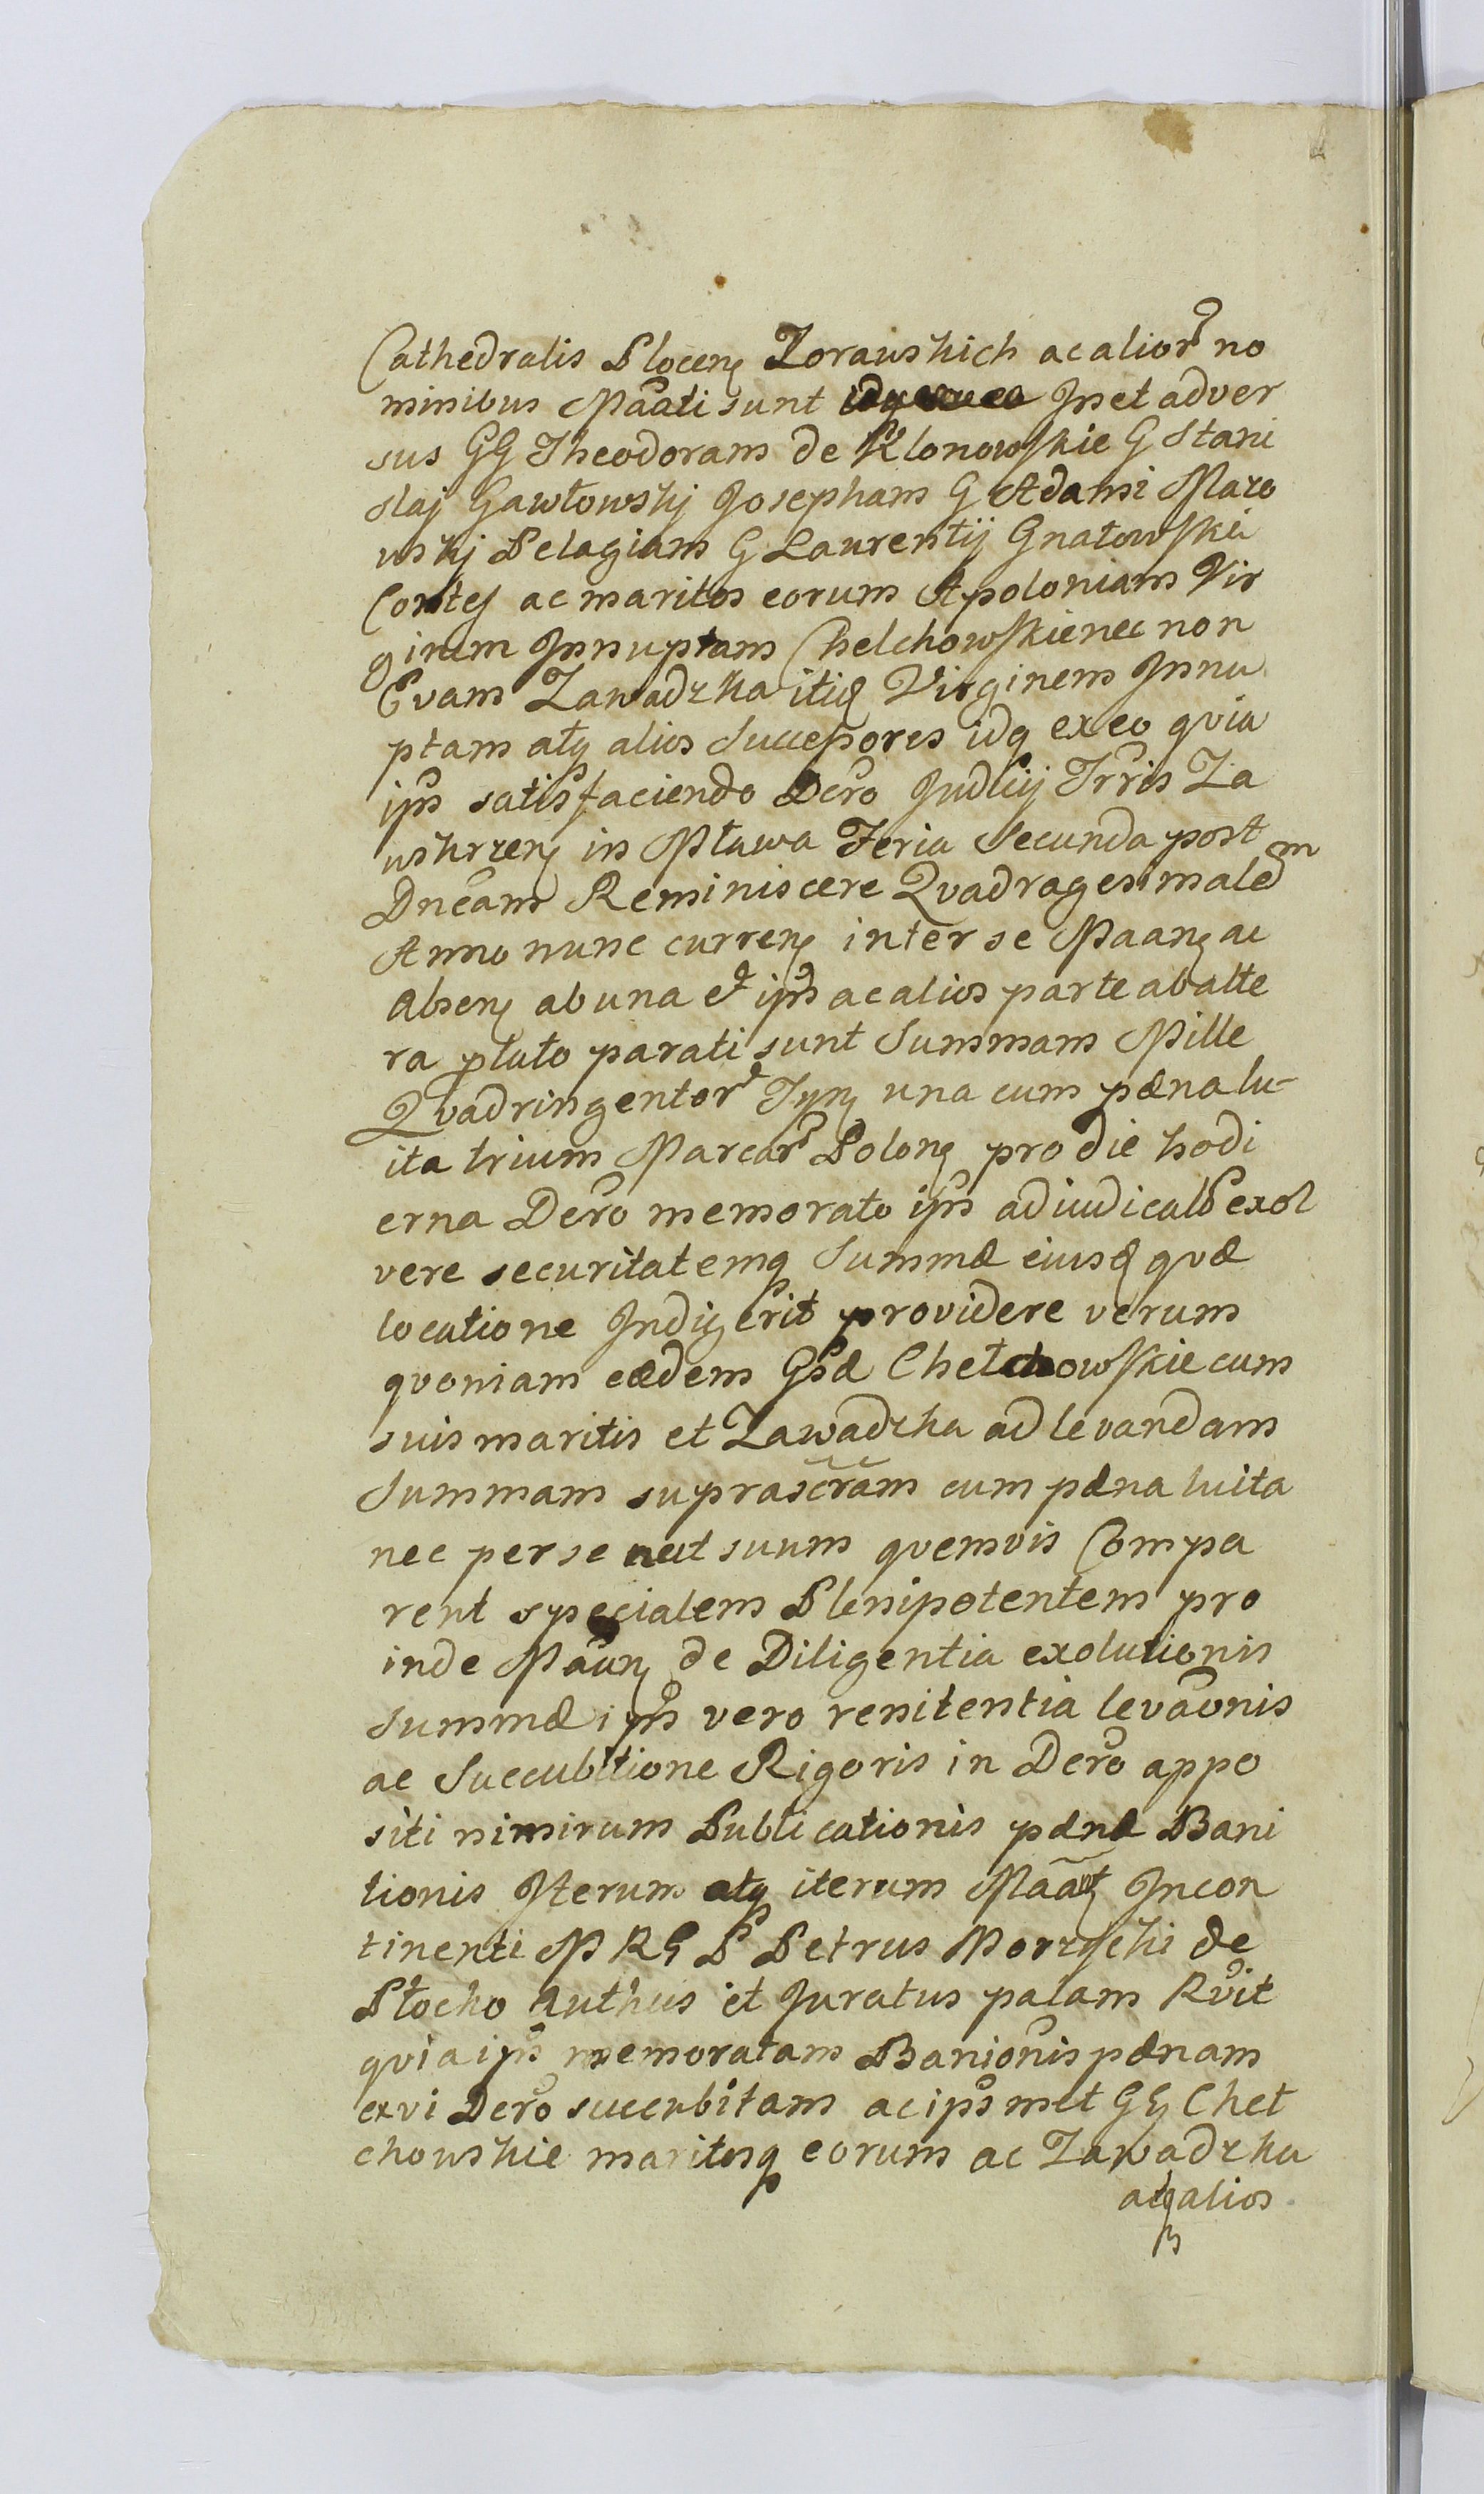 Cathedralis Płocen Zorawskich ac alior no
minibus Mãati sunt In et adver
sus GG Theodoram de Klonowskie G Stani
slaj Gawłowskj Josepham G Adami Mazo
wskj Pelagiam G Laurentij Gnatowski
Contes ac maritos eorum Apoloniam Vir
ginem Innuptam Chelchowskie nec non
Evam Zawadzka itid Virginem Innu
ptam atq alios Successores idq ex eo qvia
ips satisfaciendo Dcro Judicij Trris Za
wskrzen in Mława Feria Secunda post
Dncam Reminiscere Qvadragesimalem
Anno nunc curren inter se Maan ac
Absen ab una et ips ac alios parte ab alte
ra ptuto parati sunt Summam Mille
Qvadringentor Tyn una cum pæna lu-
ita trium Marcar Polon pro die hodi
erna Dcro memorato ips adiudicato exol
vere securitatemq Summæ eiusd qvæ
locatione Indigerit providere verum
qvoniam eædem Gsæ Chełchowskie cum
suis maritis et Zawadzka ad levandam
Summam suprascram cum pæna luita
nec per se aut suum qvemvis Compa
rent specialem Plenipotentem pro
inde Mãan de Diligentia exolutionis
Summæ ips vero renitentia levaonis
ac Succubitione Rigoris in Dcro appo
siti nimirum Publicationis pænæ Bani
tionis Iterum atq iterum Mãat Incon
tinenti M RG P Petrus Morzycki de
Płocko Authus et Juratus palam Rvit
qvia ips memoratam Banionis pænam
ex vi Dcro succubitam ac ips met GG Cheł
chowskie maritosq eorum ac Zawadzka
atq alios